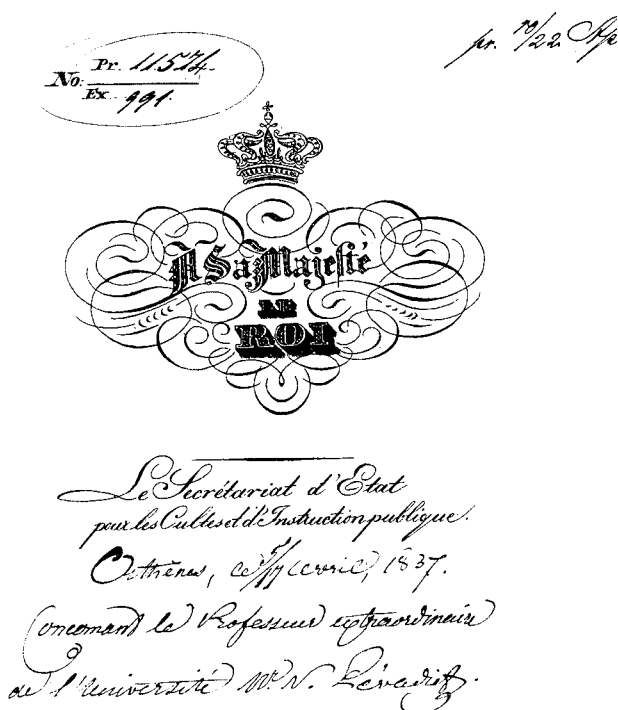 pr. 10/22 Ap
No. Pr. 11574.
Ex. 991.
A Sa Majesté
LE
ROI
Le Secrétariat d'Etat
pour les Cultes et d'Instruction publique.
Athènes, ce 5/17 avril, 1837.
Concernant le Professeur extraordinaire
de l'Université Mr. N.